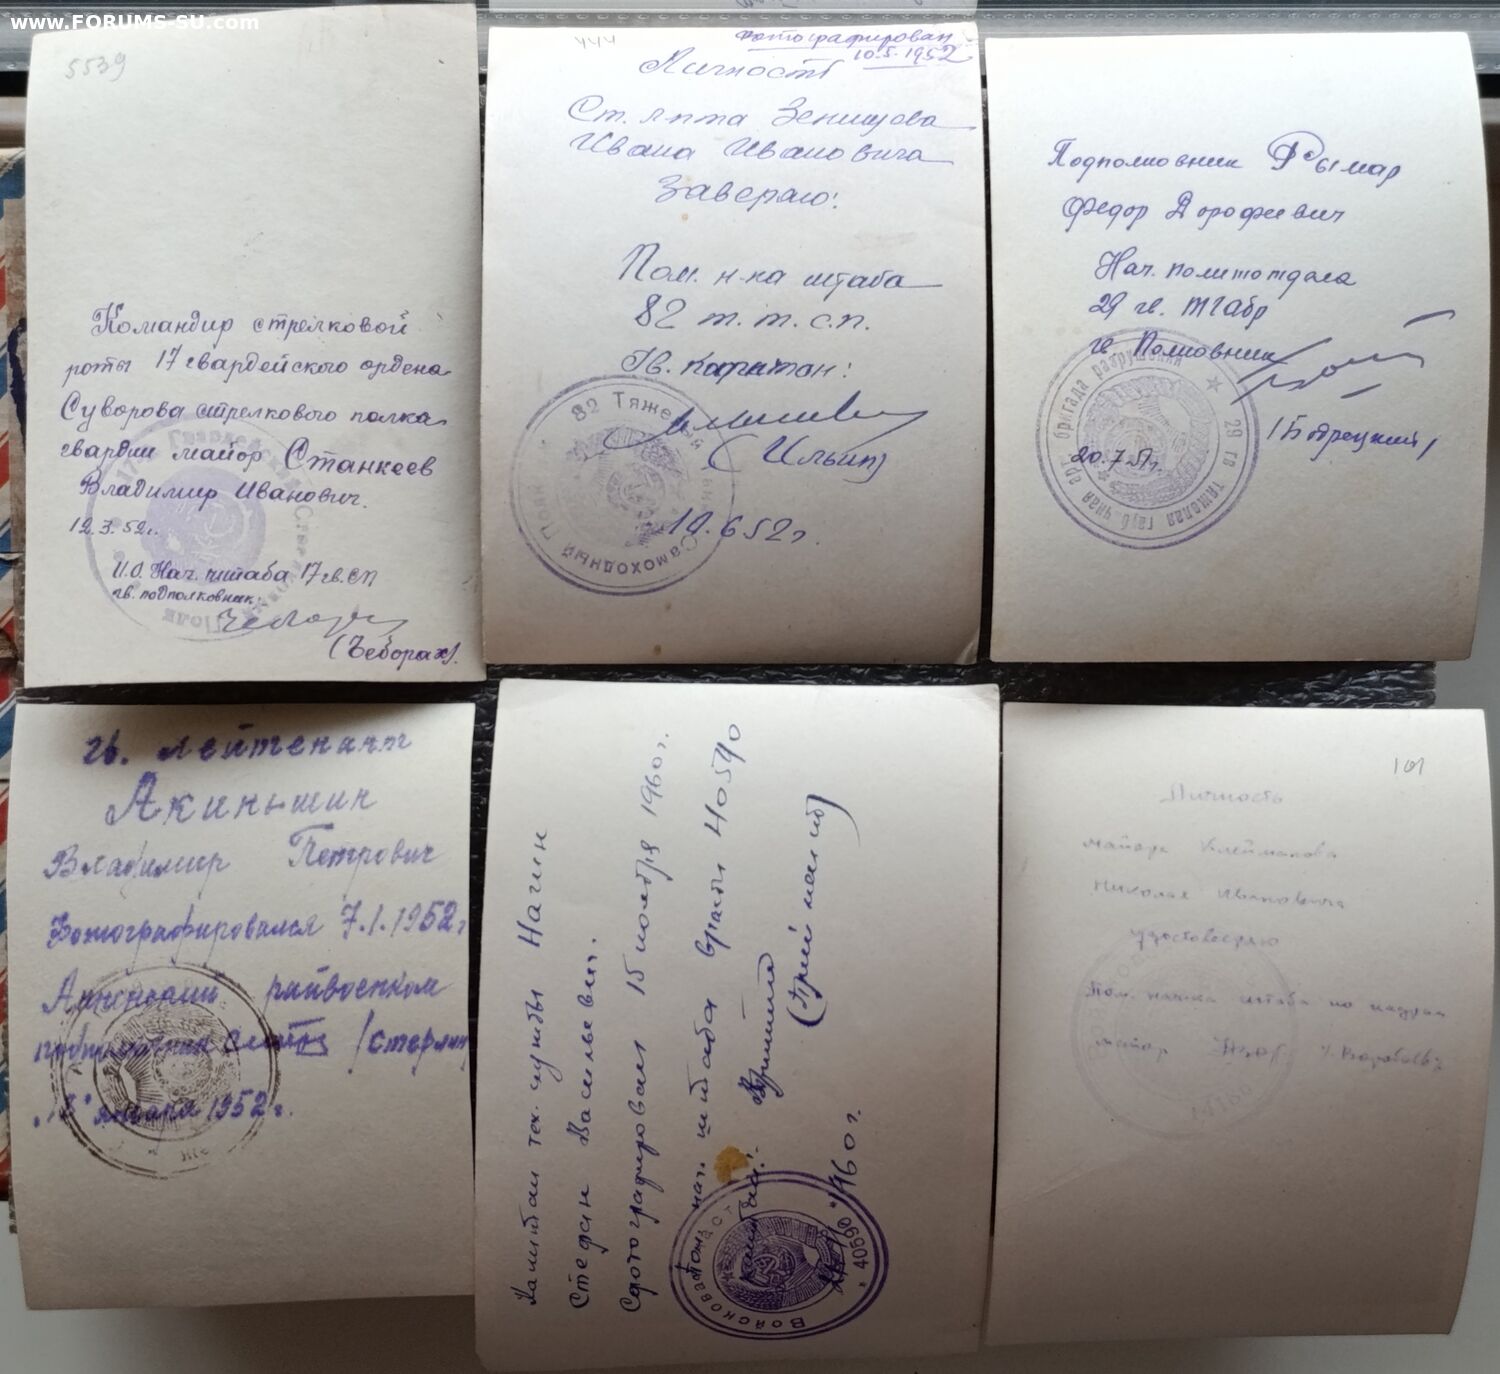 www.FORUMS-SU.com
5539
Командир стрелковой
роты 17 гвардейского ордена
Суворова стрелкового полка
гвардии майор Станкеев
Владимир Иванович.
12.3.52г.
И.О. Нач. штаба 17 гв. СП
гв. подполковник:
(Чеборах).
444
Фотографирован
10.5.1952
Личность
Ст. л-нта Зенищева
Ивана Ивановича
Заверяю:
Пом. н-ка штаба
82 т.т.с.п.
Гв. капитан:
(Ильин)
82 Тяжелый
Самоходный Полк
10.6.52г.
Подполковник Рымар
Федор Дорофеевич
Нач. политотдела
29 гв. ТГАбр
гв Полковник
/Бобрецкий/
20.7.51г.
29 гв тяжелая гауб.чная арт бригада разрушения
гв. лейтенант
Акиньшин
Владимир Петрович
Фотографировался 7.1.1952г
райвоенком
подполковник /Стерлин
января 1952г.
Капитан тех. службы Нагин
Степан Васильевич.
Сфотографирован 15 ноября 1960г.
Пом. нач. штаба в/части 40590
капитан:
1960г.
Войсковая часть * 40590 *
101
Личность
майора Клейманова
Николая Ивановича
удостоверяю
Пом. нач-ка штаба по кадрам
майор /Воробьев/